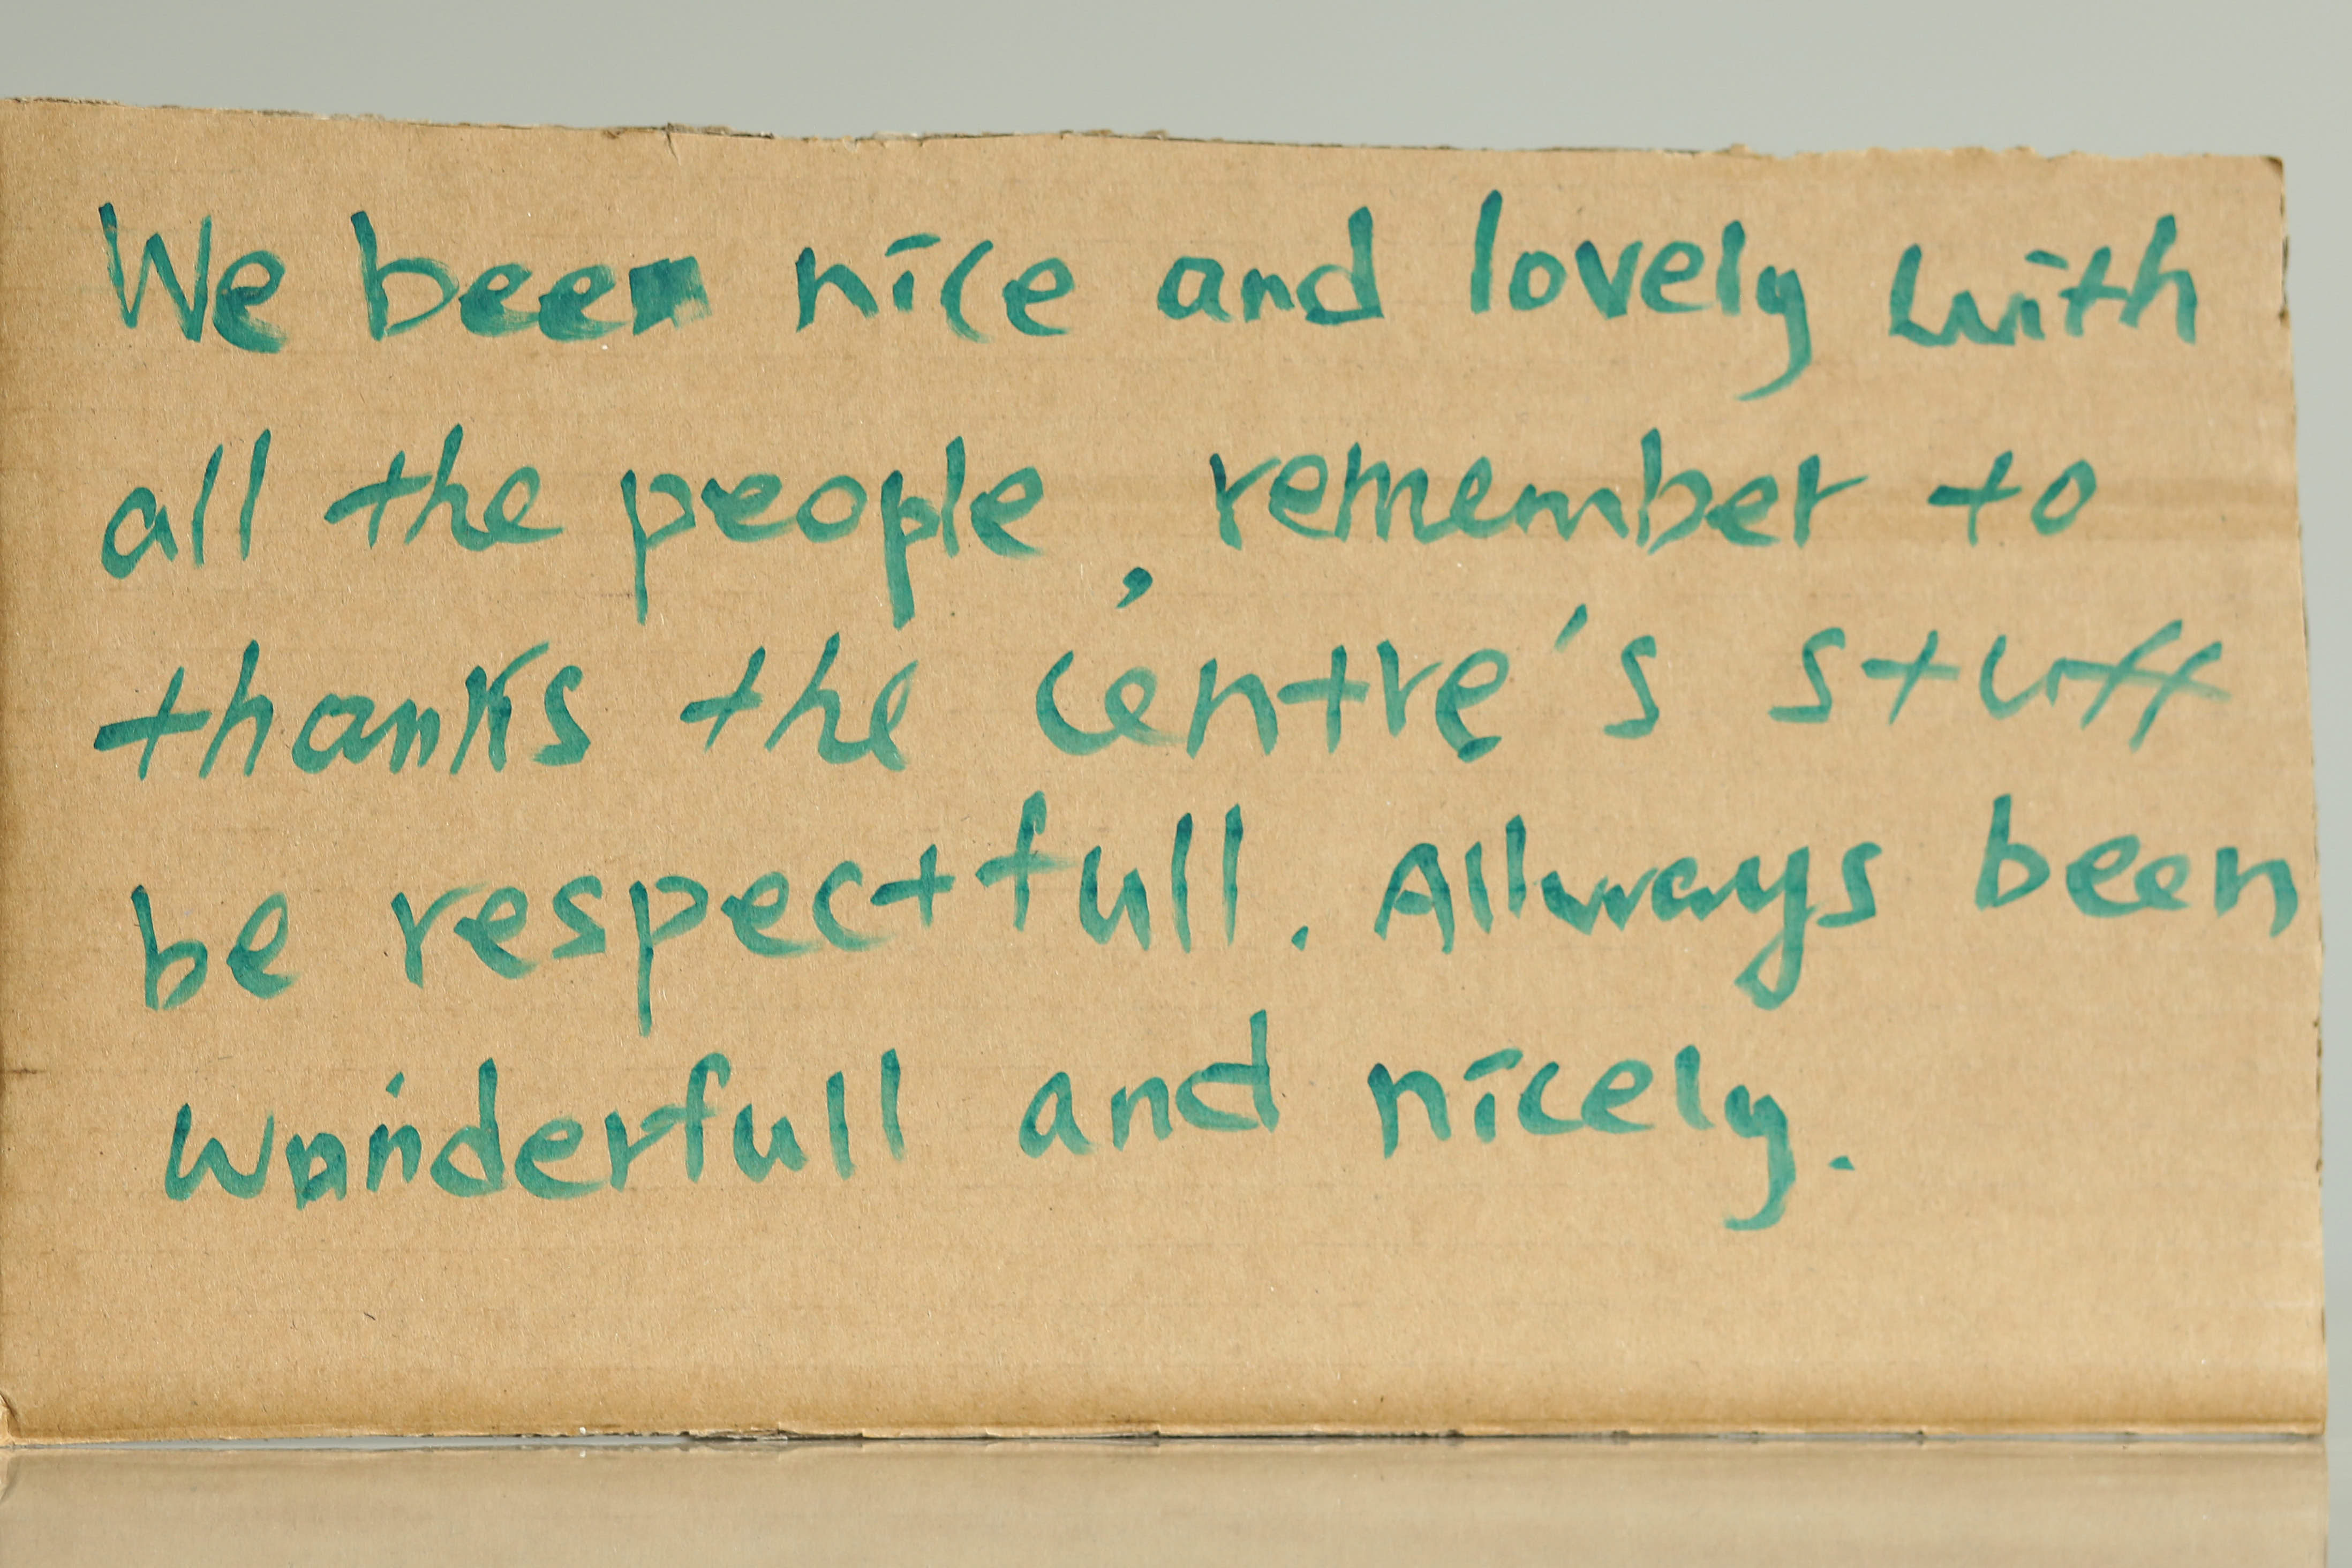 We been nice and lovely with
all the people, remember to
thanks the centre's stuff
be respectfull. Allways been
wonderfull and nicely.